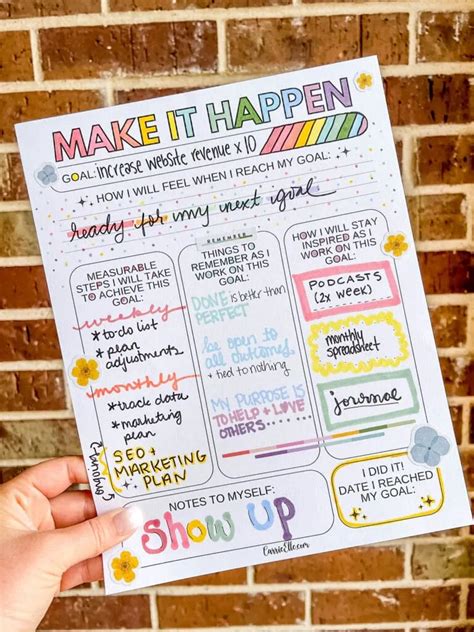 MAKE IT HAPPEN
GOAL: increase website revenue x 10
HOW I WILL FEEL WHEN I REACH MY GOAL:
ready for my next goal
MEASURABLE
STEPS I WILL TAKE
TO ACHIEVE THIS
GOAL:
weekly
* to do list
* plan
adjustments
monthly
* track data
* marketing
plan
SEO +
MARKETING
PLAN
REMEMBER
THINGS TO
REMEMBER AS I
WORK ON THIS
GOAL:
DONE is better than
PERFECT
be open to
all outcomes
+ tied to nothing
MY PURPOSE IS
TO HELP + LOVE
OTHERS.....
HOW I WILL STAY
INSPIRED AS I
WORK ON THIS
GOAL:
PODCASTS
(2x week)
monthly
spreadsheet
journal
NOTES TO MYSELF:
Show UP
I DID IT!
DATE I REACHED
MY GOAL:
CarrieElle.com